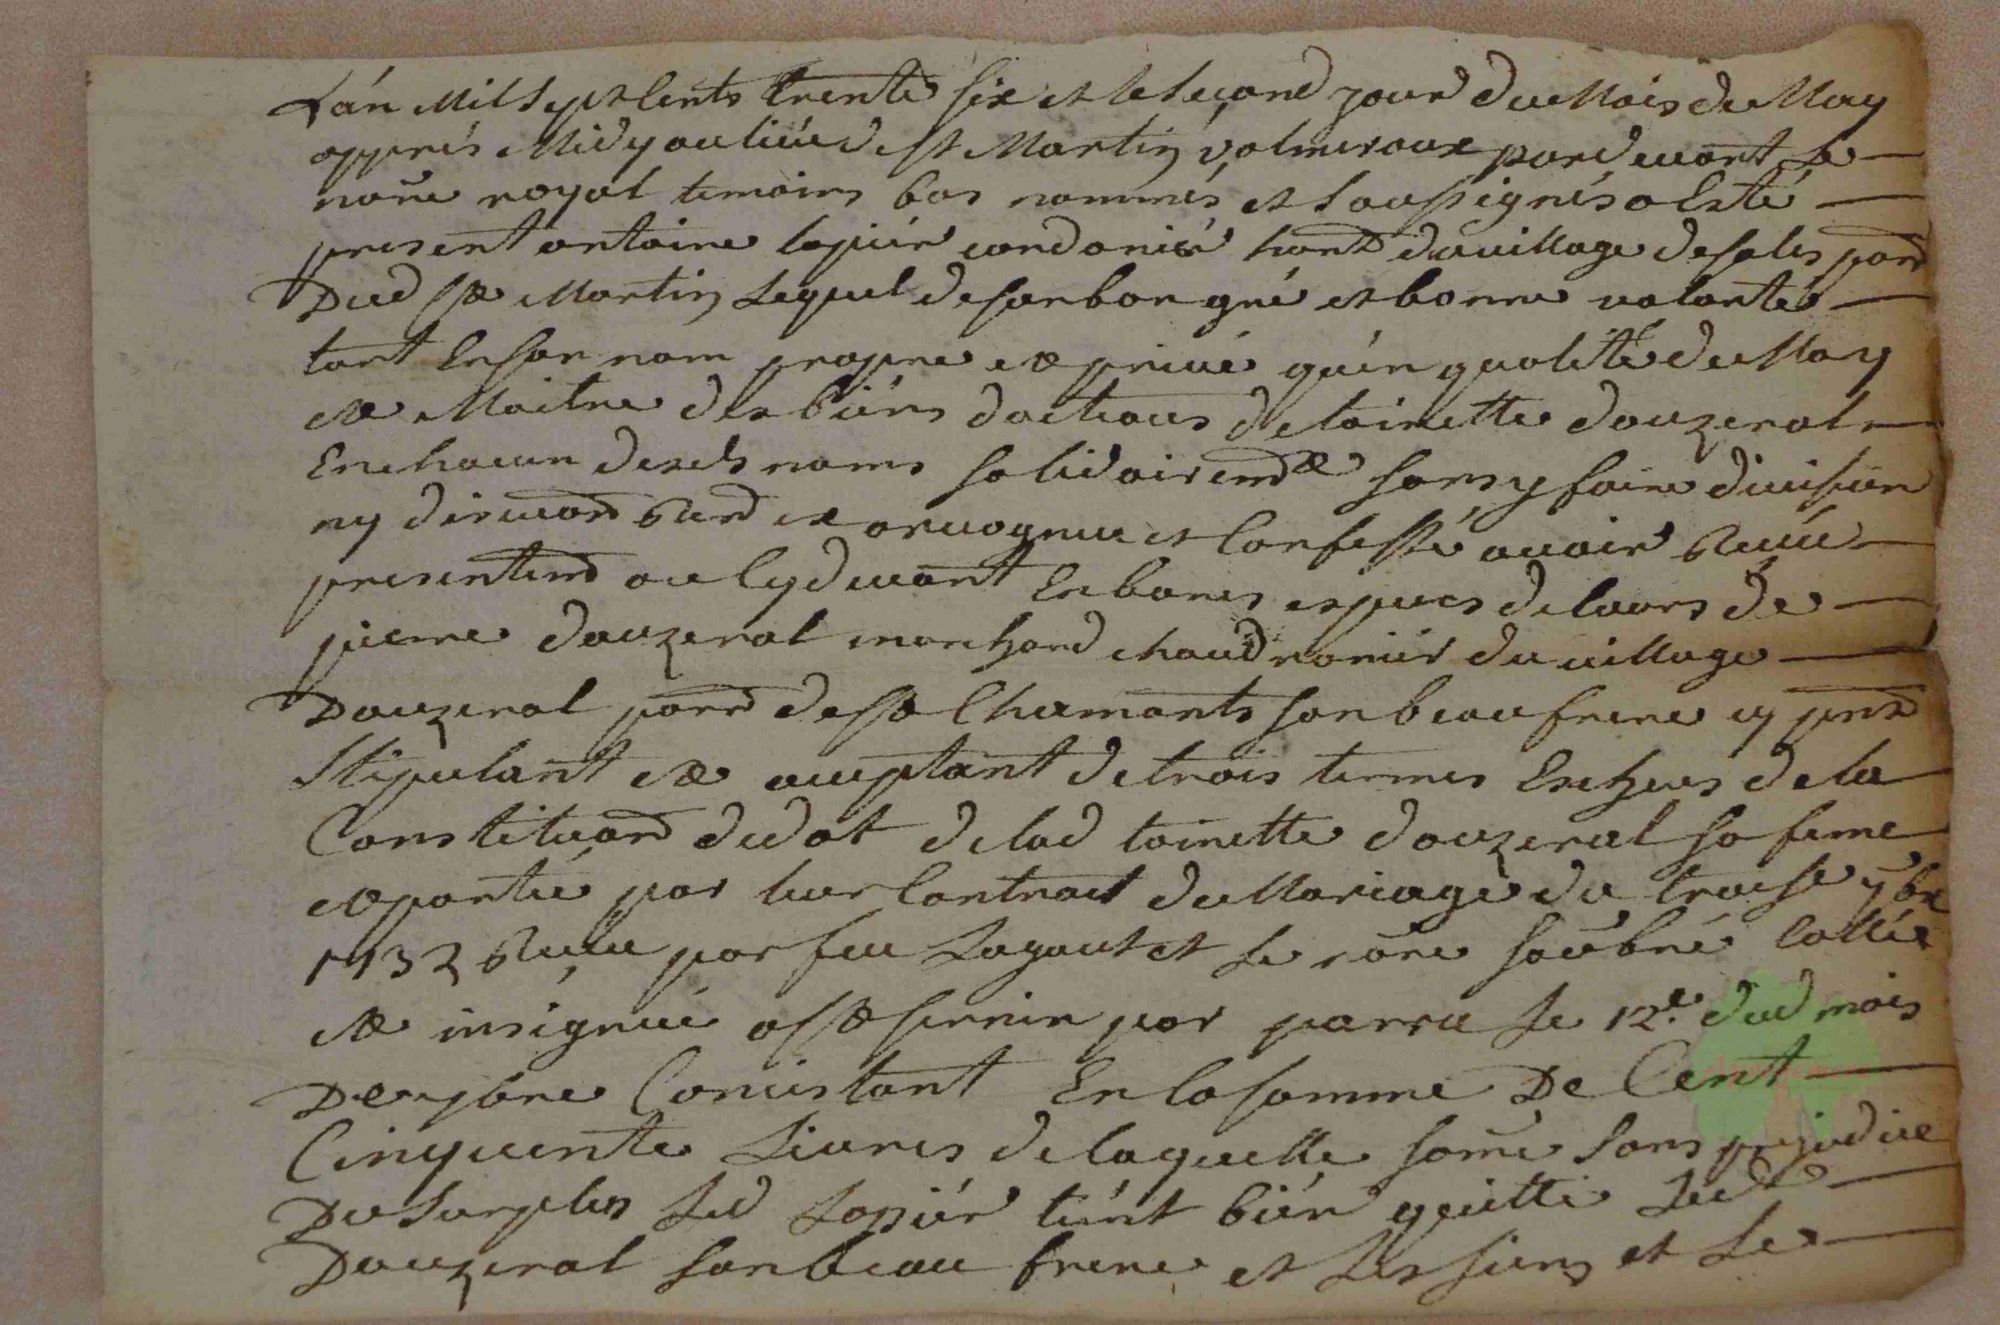 Lán Mil Sept Cents trente six et le second jour du Mois de May
apprés Midy au liéu de St Martin valmeroux pardevant le
nore royal temoins bas nommés et soussignés a Esté
present antoine lapiér cordoniér hant du village de sales parr
Dud St Martin Lequel de son bon gré et bonne volonté
tant En son nom propre et privé qu'en qualité de Mary
et Maitre des biéns dactions de toinette douzeral
En chacun desds noms solidairemt sans y faire division
ny dirmaon Curd et a recognu et Confessé avoir Receu
presentemt ou Cydevant En bones especes de cours de
pierre douzeral marchand chaudronniér du village
Douzeral parr de St Chamants son beau frere cy pnt
Stipulant et acceptant de trois termes Escheus de la
Constituaon de dot de lad toinette douzeral sa feme
et portée par leur Contract de Mariage du traise xbre
1732 Receu par feu Lagaut et le nore soubné Collé
et insignué a St Sernin par parra le 12e dud mois
De xbre Concistant En la somme De Cent
Cinquente Livres de laquelle some sans prejudice
Du surplus Led Lapiér tiént bién quitte Led
Douzeral son beau frere et les siens et le